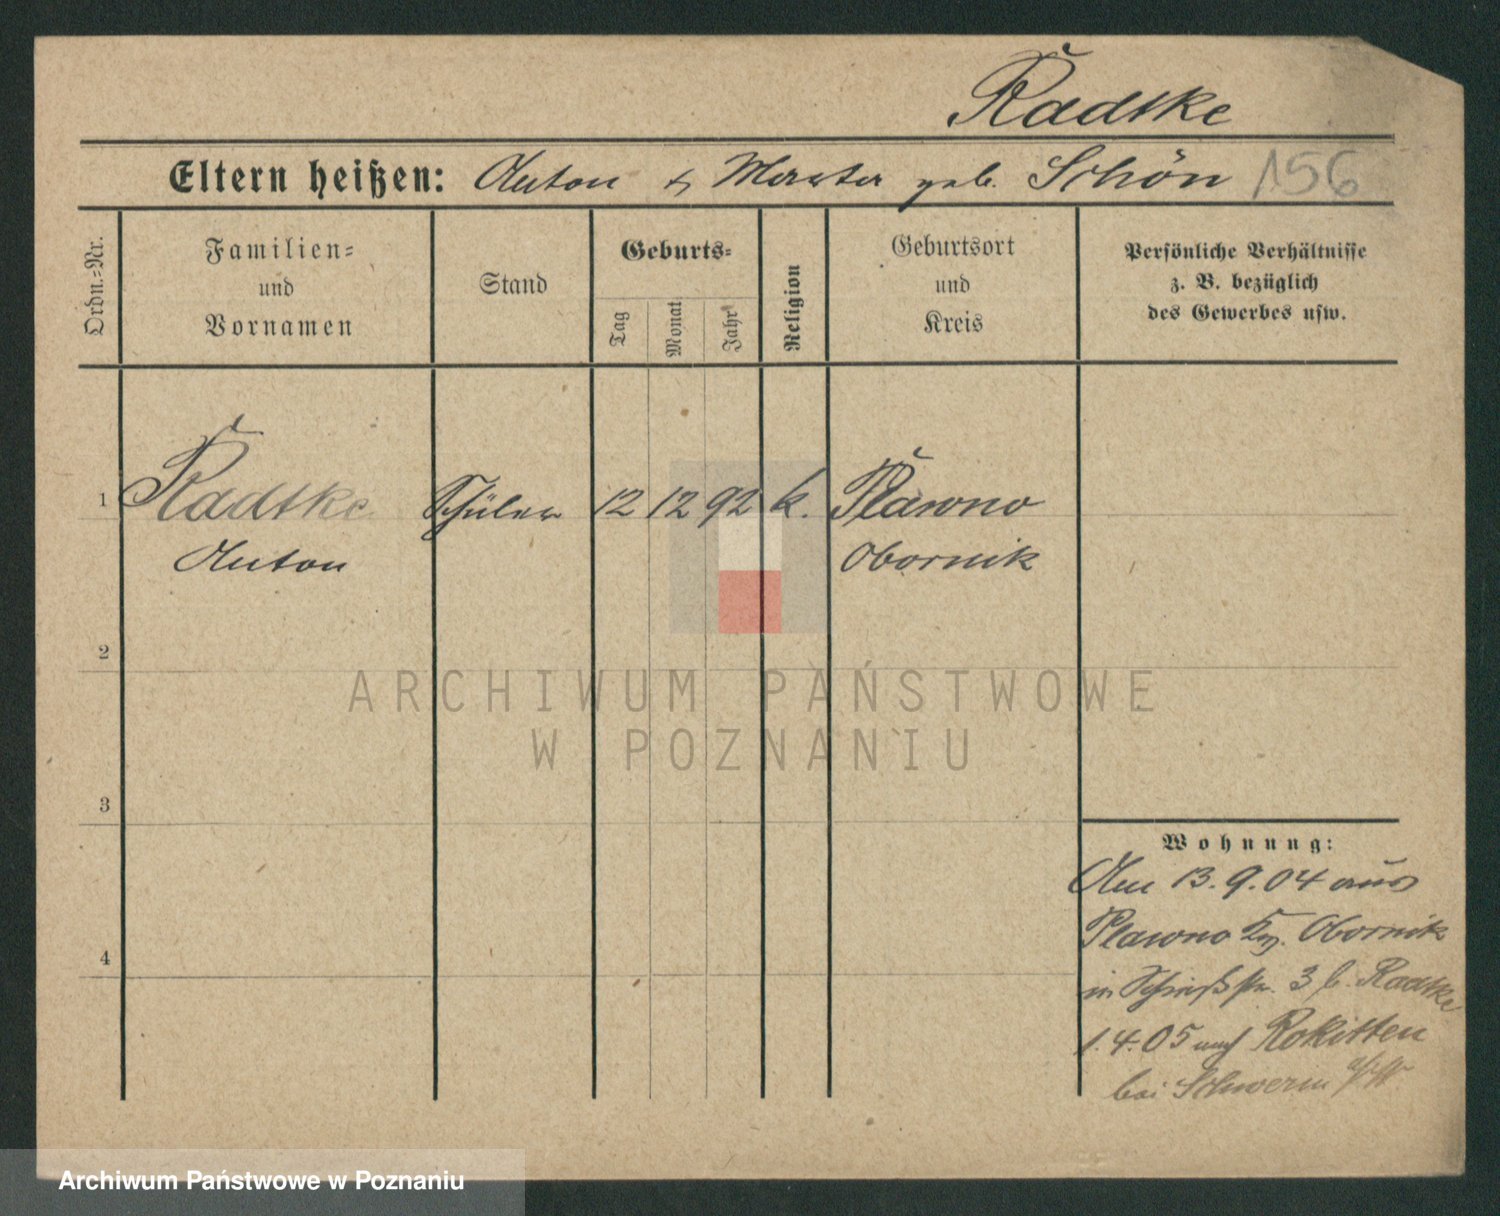 Radtke
Eltern heißen: Anton & Martha geb. Schön 156
Ordn.=Nr.
Familien=
und
Vornamen
Stand
Geburts=
Tag
Monat
Jahr
Religion
Geburtsort
und
Kreis
Persönliche Verhältnisse
z. B. bezüglich
des Gewerbes usw.
1 Radtke Schüler 12 12 92 k. Plawno
Anton Obornik
2
ARCHIWUM PAŃSTWOWE
W POZNANIU
3
Wohnung:
Am 13.9.04 aus
Plawno Krs. Obornik
in Schießstr. 3 b. Radtke
4
1.4.05 nach Rokitten
bei Schwerin a/W
Archiwum Państwowe w Poznaniu